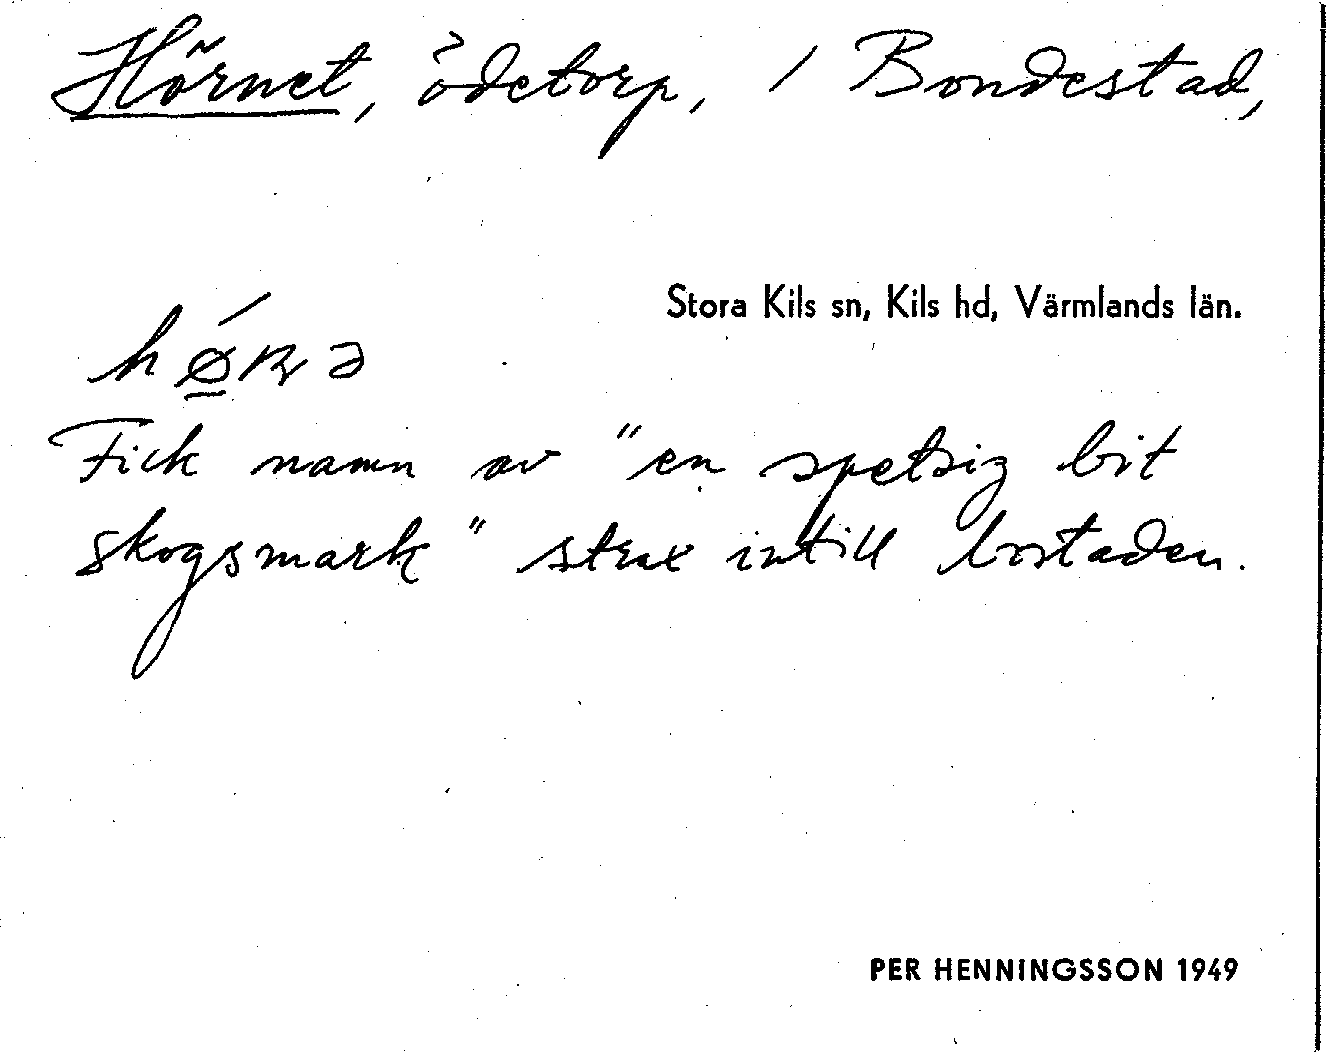 Hörnet, ödetorp, / Bondestad,
Stora Kils sn, Kils hd, Värmlands län.
Fick namn av "en spetsig bit
skogsmark" strax intill bostaden.
PER HENNINGSSON 1949